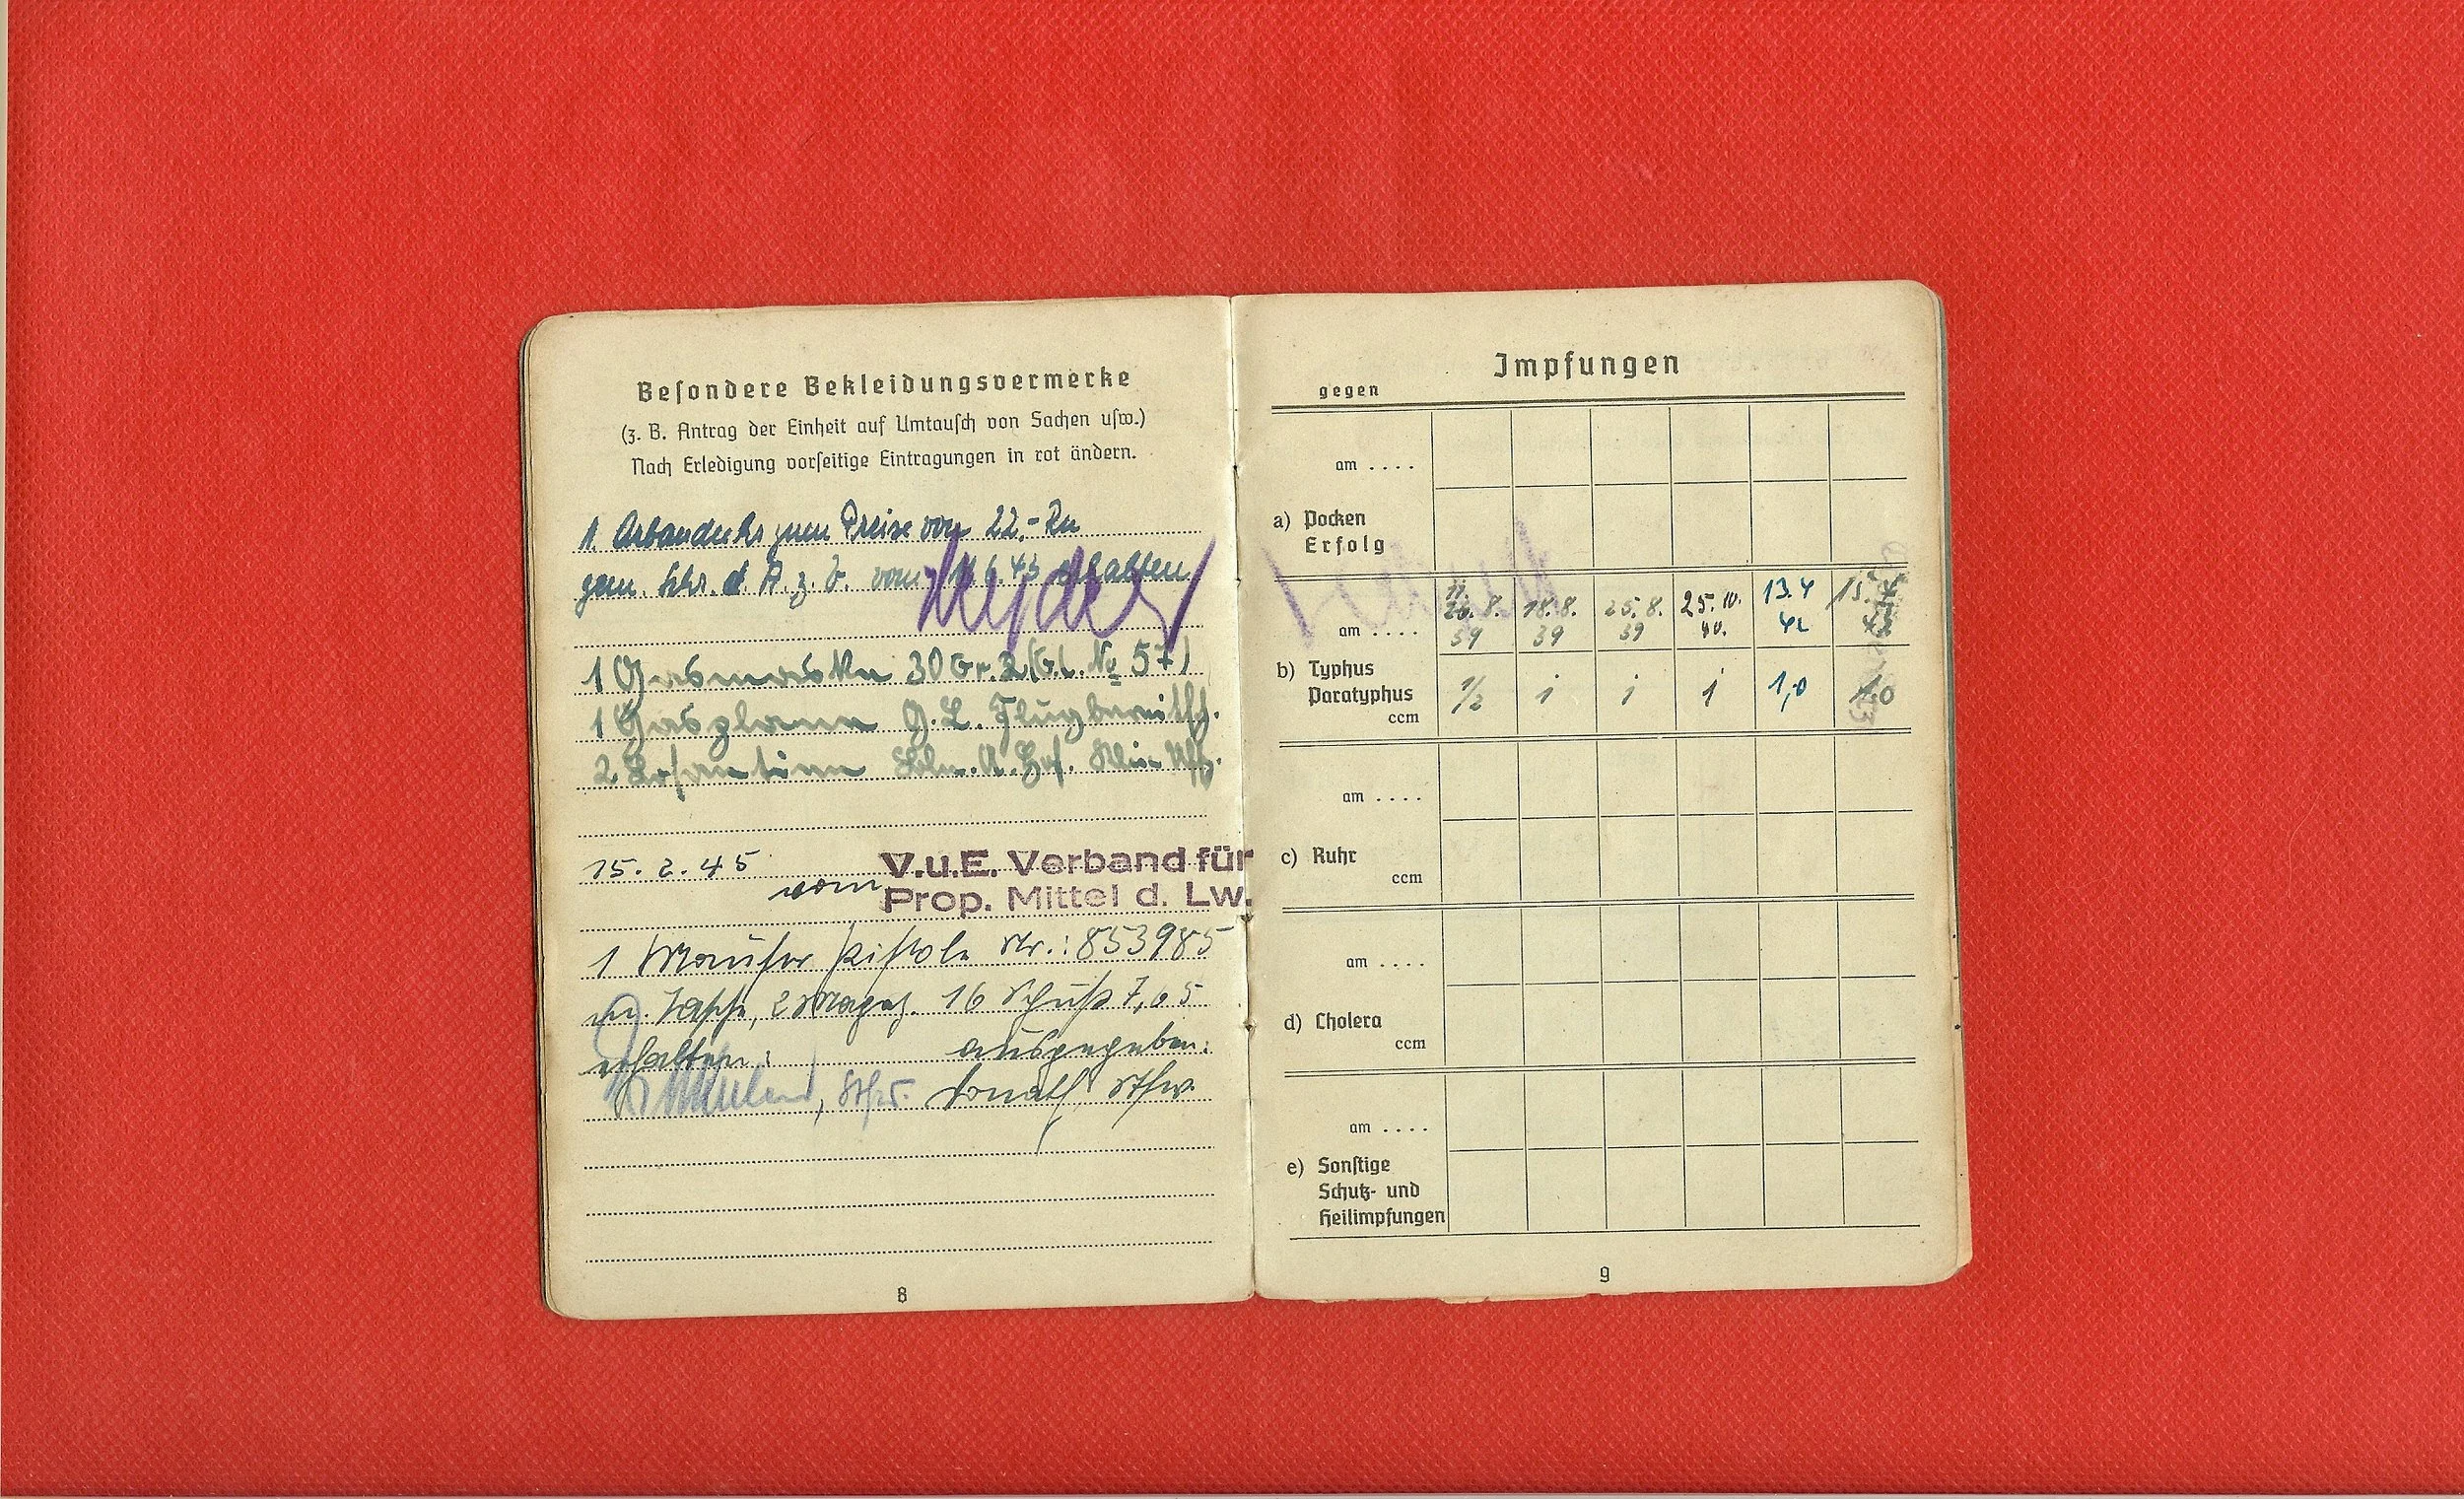 Besondere Bekleidungsvermerke
(z. B. Antrag der Einheit auf Umtausch von Sachen usw.)
Nach Erledigung vorseitige Eintragungen in rot ändern.
1 zum Preise von 22,-
gem. d. A. z. V. vom 6.43 erhalten
1 Gasmaske 30 Gr. 2 (G.L. № 57)
1 Gasplane G. L. Flugbereitsch.
2 Losantin
15. 2. 45
vom
V.u.E. Verband für
Prop. Mittel d. Lw.
1 Mauser Pistole Nr.: 853985
m. Tasche, 2 Magaz. 16 Schuß 7,65
erhalten: ausgegeben:
Stfw. Donath, Stfw.
8
Impfungen
gegen
am ....
a) Pocken
Erfolg
8. 18.8. 25.8. 25.10. 13.4 15.
am .... 39 39 39 40. 42
b) Typhus
Paratyphus 1/2 1 1 1 1,0 1,0
ccm
am ....
c) Ruhr
ccm
am ....
d) Cholera
ccm
am ....
e) Sonstige
Schutz- und
Heilimpfungen
9